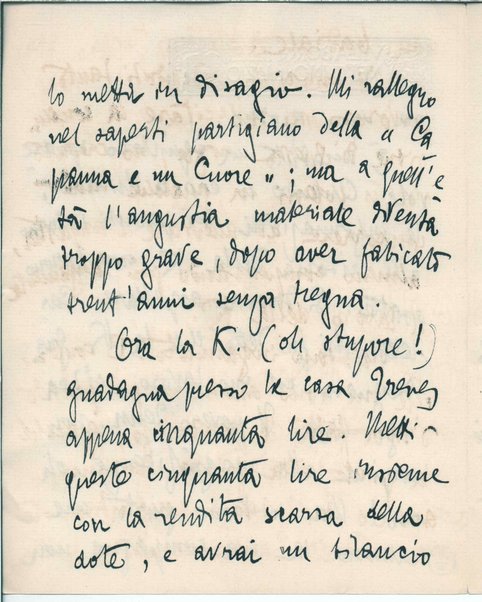 lo mette in disagio. Mi rallegro
nel saperti partigiano della "Ca
panna e un Cuore"; ma a quell'e
tà l'angustia materiale diventa
troppo grave, dopo aver faticato
trent'anni senza tregua
Ora la K. (oh stupore!)
guadagna presso la casa Treves
appena cinquanta lire. Metti
queste cinquanta lire insieme
con la rendita scarsa della
dote, e avrai un bilancio